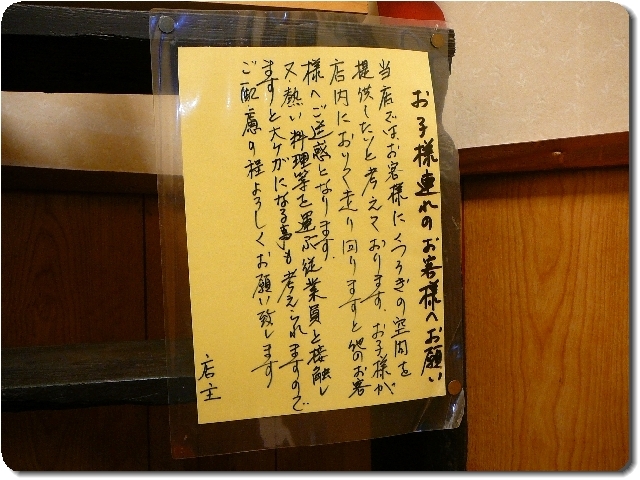 お子様連れのお客様へお願い
当店ではお客様にくつろぎの空間を
提供したいと考えております。お子様が
店内におりて走り回りますと他のお客
様へご迷惑となります。
又熱い料理等を運ぶ従業員と接触し
ますと大ケガになる事も考えられますので
ご配慮の程よろしくお願い致します
店主